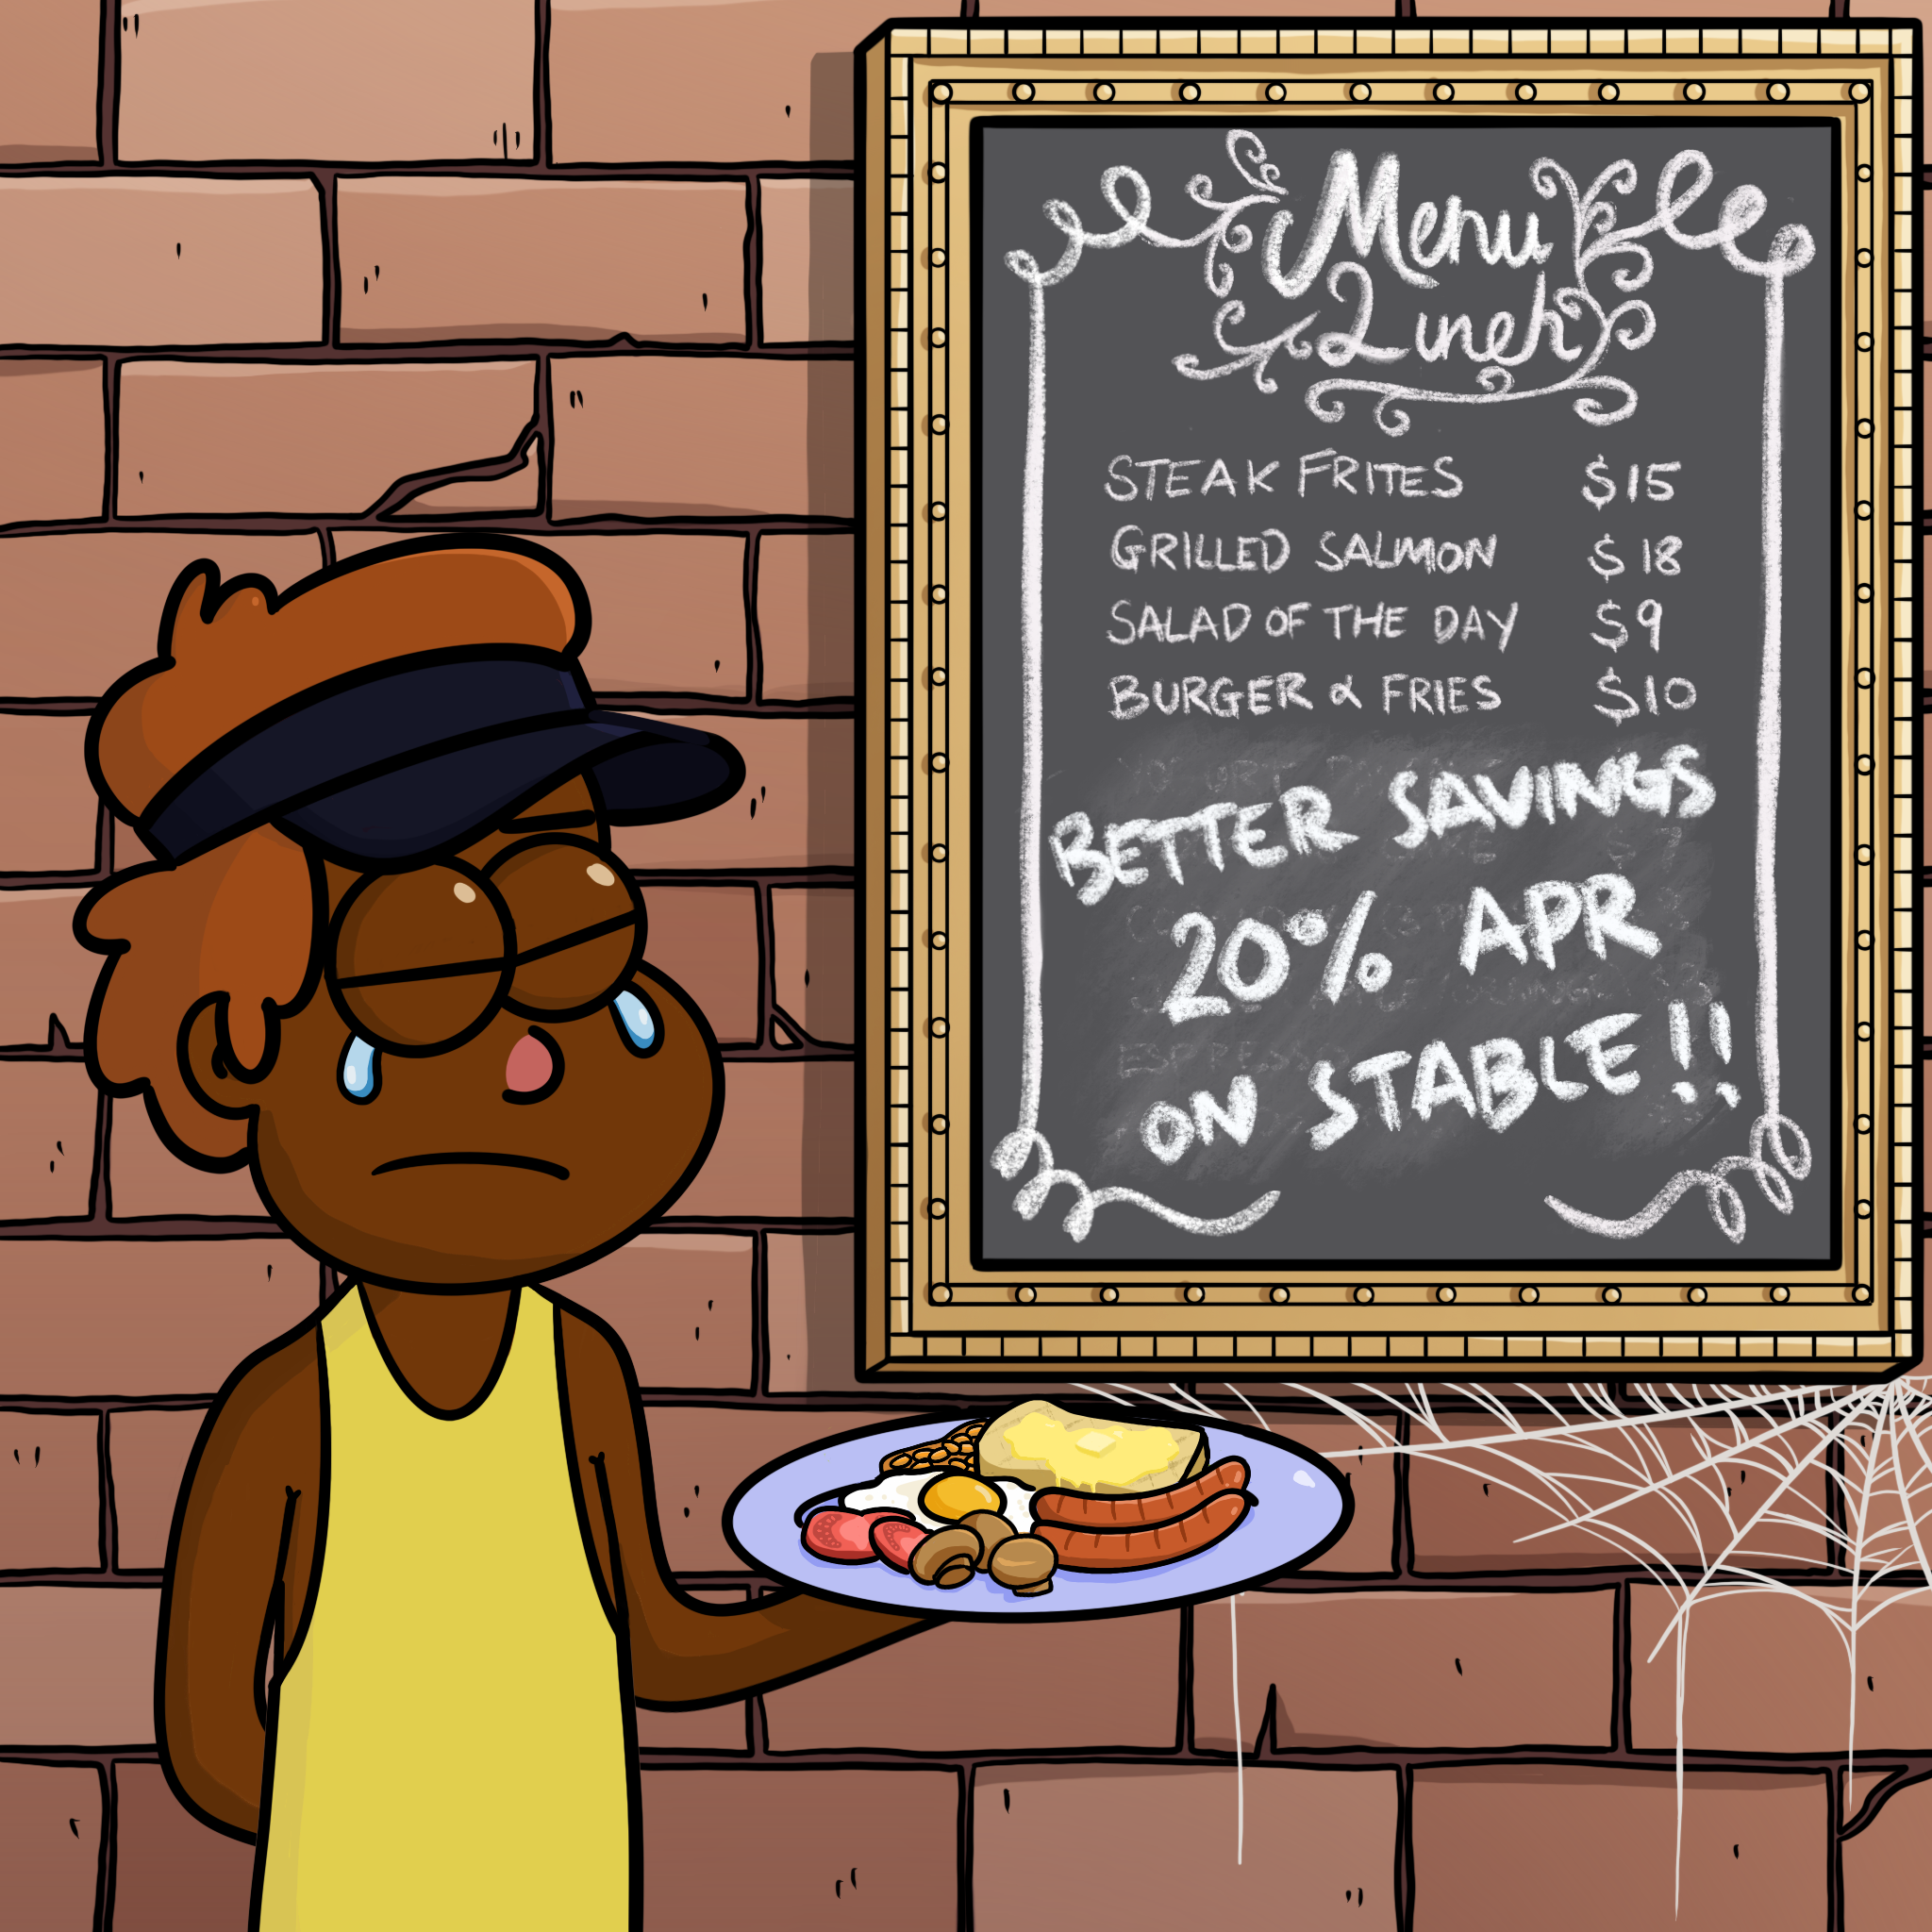 Menu
Lunch
STEAK FRITES $15
GRILLED SALMON $18
SALAD OF THE DAY $9
BURGER & FRIES $10
BETTER SAVINGS
20% APR
ON STABLE!!